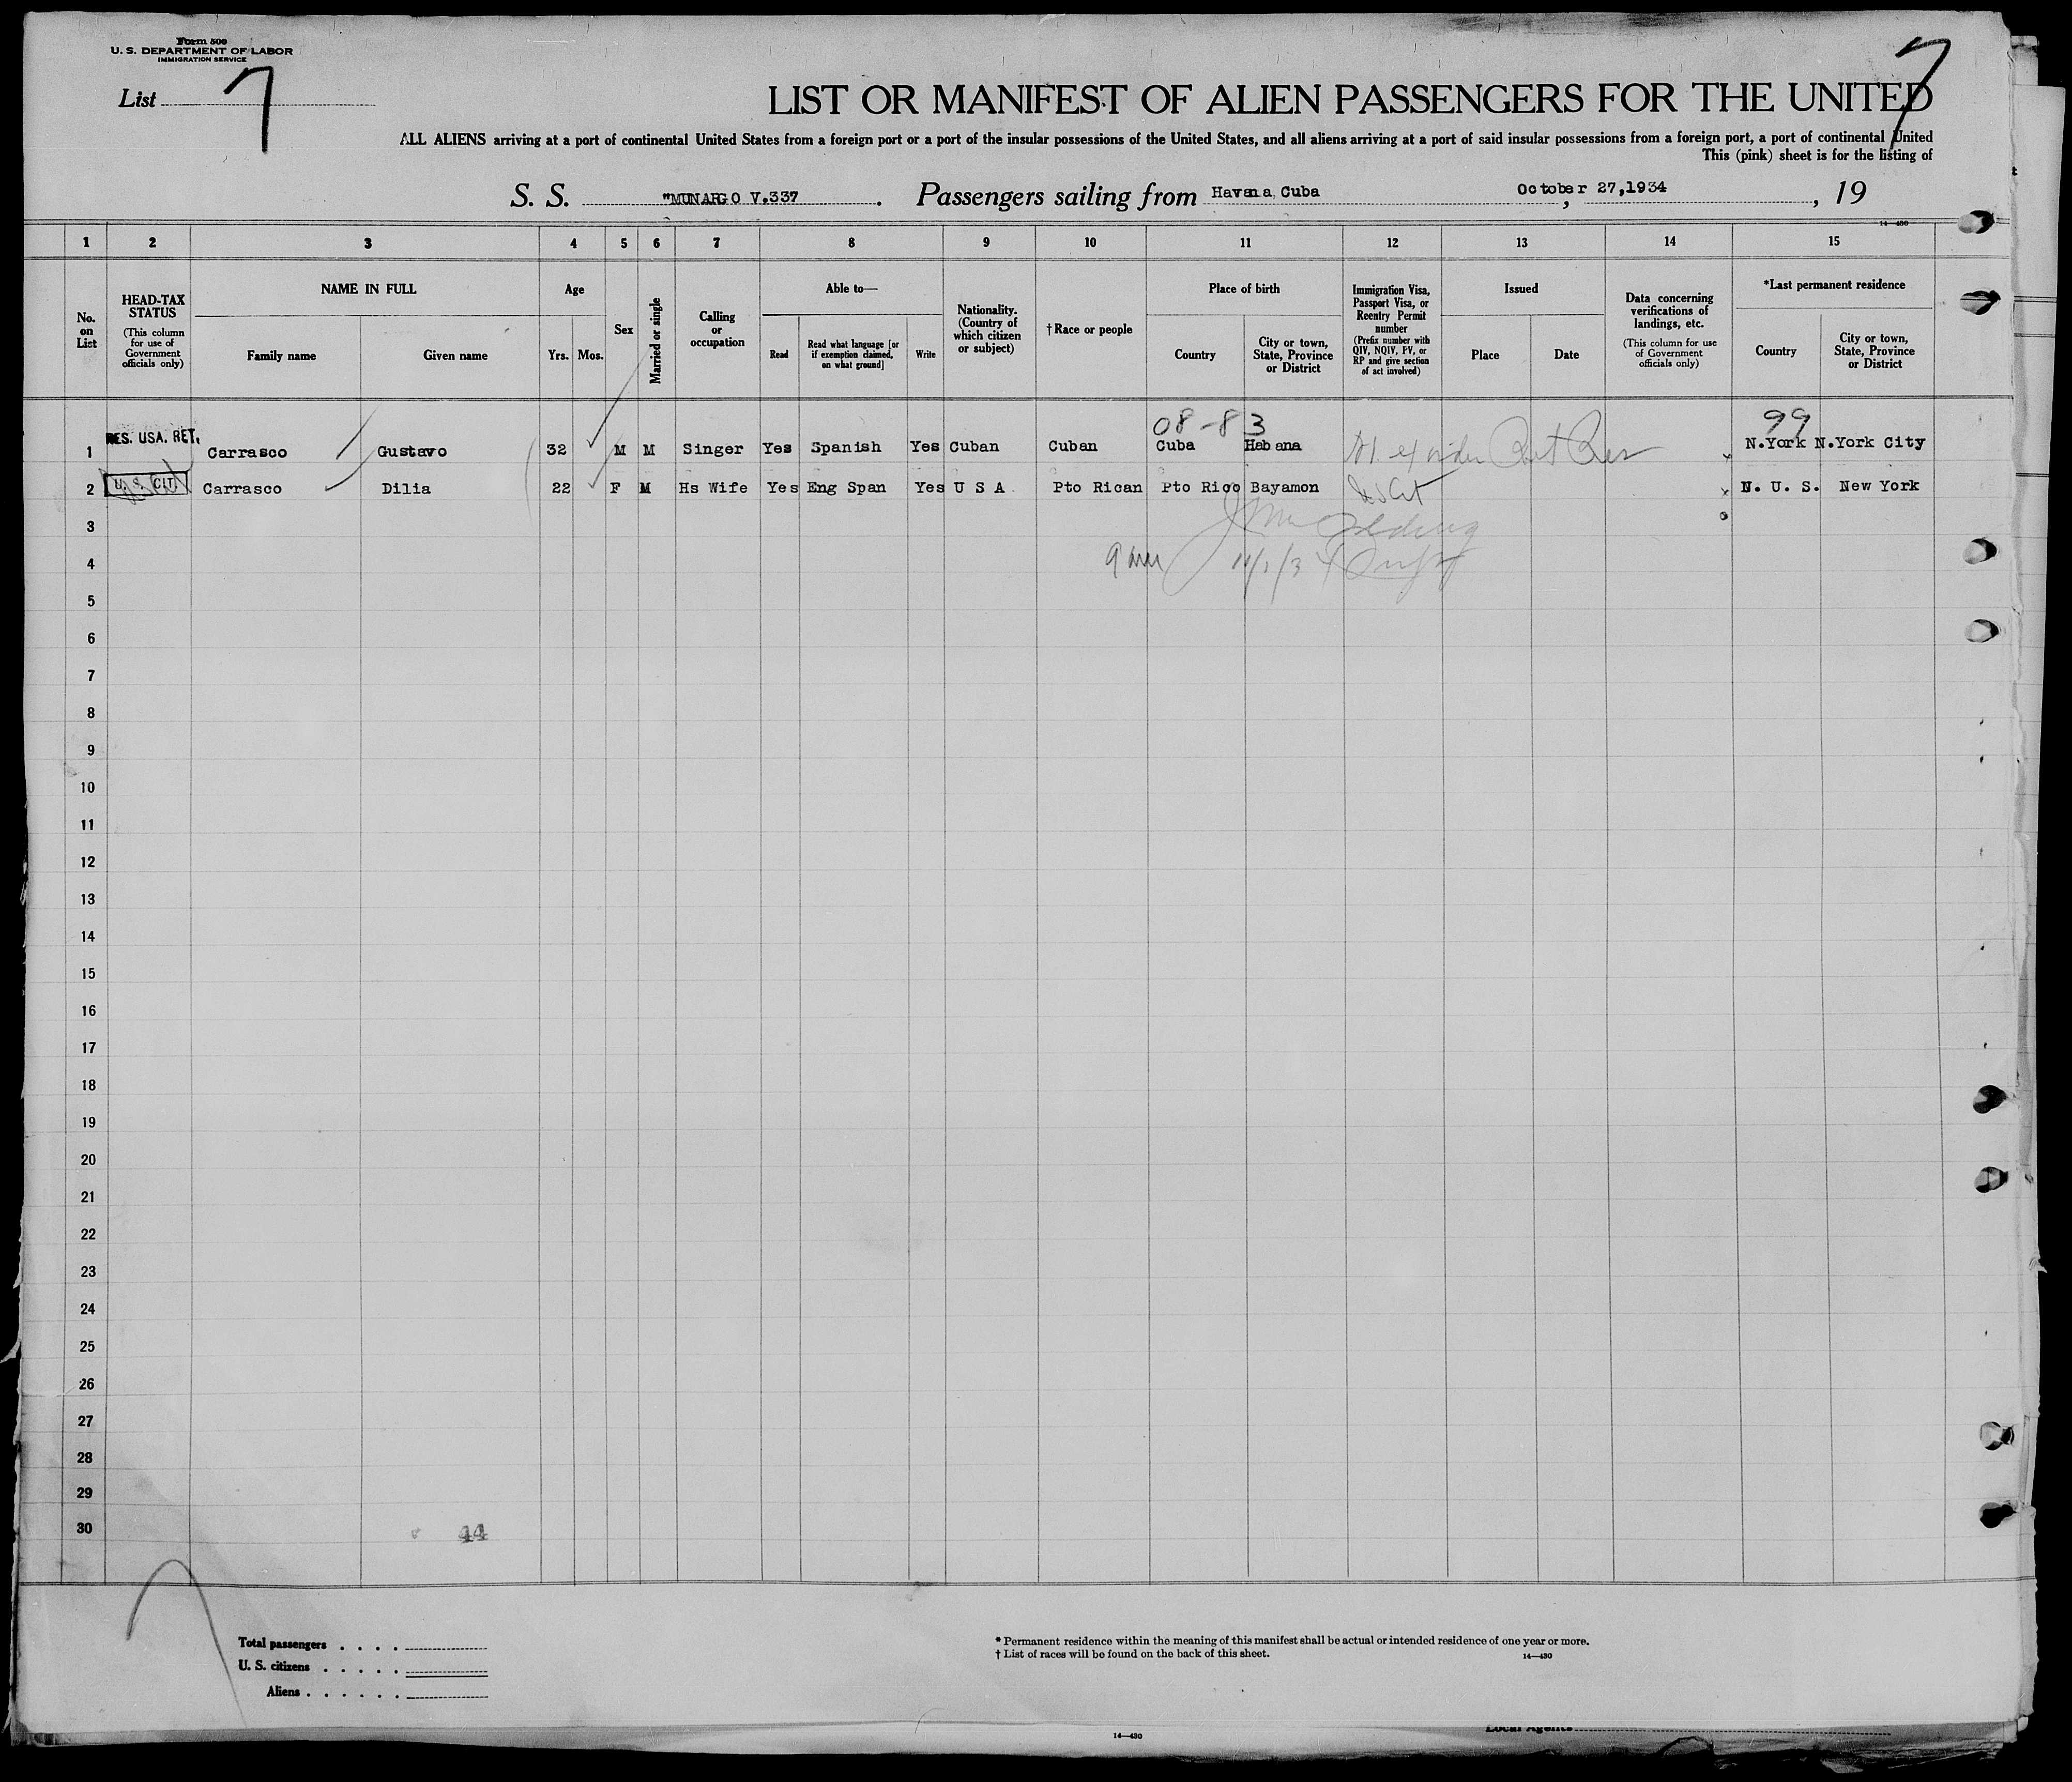 Form 500
U. S. DEPARTMENT OF LABOR
IMMIGRATION SERVICE
List 7
7
LIST OR MANIFEST OF ALIEN PASSENGERS FOR THE UNITED
ALL ALIENS arriving at a port of continental United States from a foreign port or a port of the insular possessions of the United States, and all aliens arriving at a port of said insular possessions from a foreign port, a port of continental United
This (pink) sheet is for the listing of
S. S. "MUNARGO V.337 . Passengers sailing from Havana, Cuba , October 27,1934 , 19
14—430
1 2 3 4 5 6 7 8 9 10 11 12 13 14 15
No. on List
HEAD-TAX STATUS
(This column for use of Government officials only)
NAME IN FULL
Family name Given name
Age
Yrs. Mos.
Sex
Married or single
Calling or occupation
Able to—
Read Read what language [or if exemption claimed, on what ground] Write
Nationality. (Country of which citizen or subject)
†Race or people
Place of birth
Country City or town, State, Province or District
Immigration Visa, Passport Visa, or Reentry Permit number
(Prefix number with QIV, NQIV, PV, or RP and give section of act involved)
Issued
Place Date
Data concerning verifications of landings, etc.
(This column for use of Government officials only)
*Last permanent residence
Country City or town, State, Province or District
08-83 99
1 RES. USA. RET. Carrasco Gustavo 32 M M Singer Yes Spanish Yes Cuban Cuban Cuba Habana N.York N.York City
2 U. S. CIT. Carrasco Dilia 22 F M Hs Wife Yes Eng Span Yes U S A Pto Rican Pto Rico Bayamon US Cit N. U. S. New York
3
4 11/1/34
5
6
7
8
9
10
11
12
13
14
15
16
17
18
19
20
21
22
23
24
25
26
27
28
29
30 44
Total passengers . . . .
U. S. citizens . . . . .
Aliens . . . . . .
* Permanent residence within the meaning of this manifest shall be actual or intended residence of one year or more.
† List of races will be found on the back of this sheet. 14—430
14—430
Local Agents